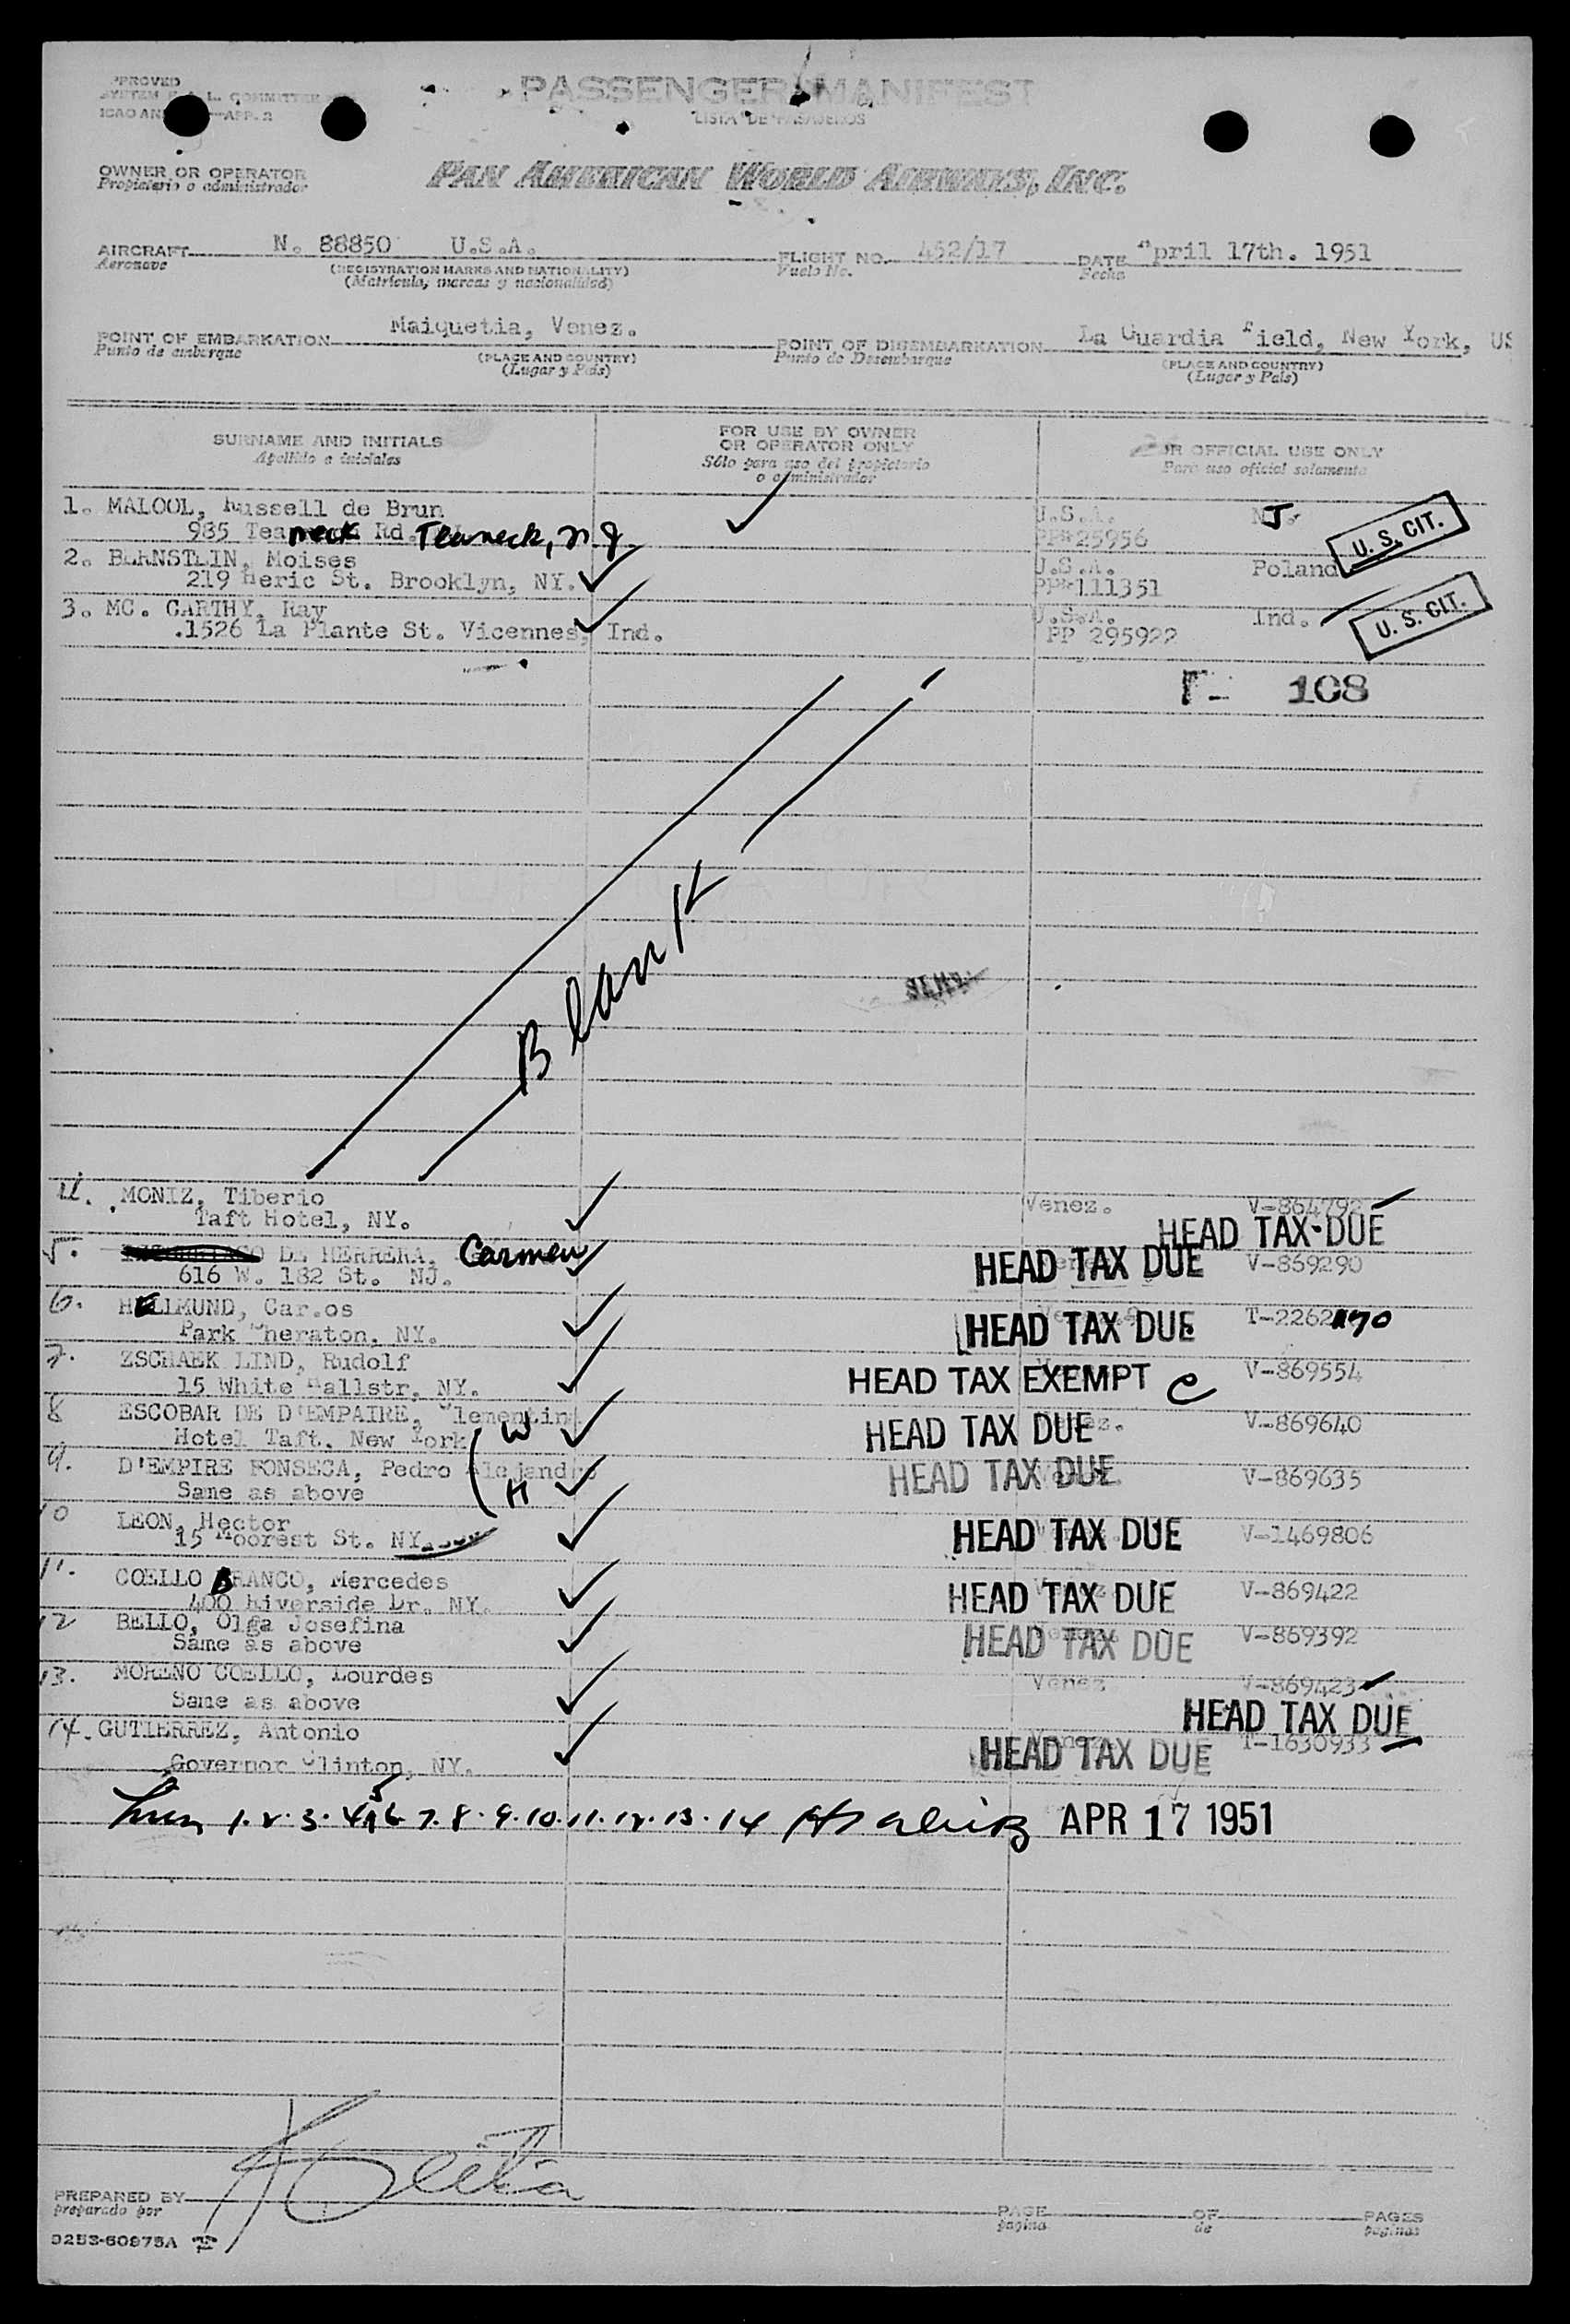 PASSENGER MANIFEST
LISTA DE PASAJEROS
OWNER OR OPERATOR
Propietario o administrador
PAN AMERICAN WORLD AIRWAYS, INC.
AIRCRAFT N. 88850 U.S.A. FLIGHT NO. 452/17 DATE April 17th. 1951
Aeronave (REGISTRATION MARKS AND NATIONALITY) Vuelo No. Fecha
(Matrícula, marcas y nacionalidad)
POINT OF EMBARKATION Maiquetia, Venez. POINT OF DISEMBARKATION La Guardia Field, New York, US
Punto de embarque (PLACE AND COUNTRY) Punto de Desembarque (PLACE AND COUNTRY)
(Lugar y País) (Lugar y País)
SURNAME AND INITIALS FOR USE BY OWNER OR OPERATOR ONLY FOR OFFICIAL USE ONLY
Apellido e iniciales Sólo para uso del propietario o administrador Para uso oficial solamente
1. MALOOL, Russell de Brun U.S.A. NJ.
985 Teaneck Rd. Teaneck, N.J. PP#25956 U. S. CIT.
2. BERNSTEIN, Moises U.S.A. Poland
219 Heric St. Brooklyn, NY. PP#111351
3. MC. CARTHY, Ray U.S.A. Ind. U. S. CIT.
.1526 La Plante St. Vicennes, Ind. PP 295922
108
Blank
4. MONIZ, Tiberio Venez. V-864792
Taft Hotel, NY. HEAD TAX DUE
5. DE HERRERA, Carmen HEAD TAX DUE V-859290
616 W. 182 St. NJ.
6. HELLMUND, Car.os HEAD TAX DUE T-2262
Park Sheraton, NY.
7. ZSCHAEK LIND, Rudolf HEAD TAX EXEMPT C V-869554
15 White Hallstr. NY.
8 ESCOBAR DE D'EMPAIRE, Clementin W HEAD TAX DUE V-869640
Hotel Taft, New York
9. D'EMPIRE FONSECA, Pedro Alejandro HEAD TAX DUE V-869635
Same as above H
10 LEON, Hector HEAD TAX DUE V-1469806
15 Moorest St. NY.
11. COELLO BRANCO, Mercedes HEAD TAX DUE V-869422
400 Riverside Dr. NY.
12 BELLO, Olga Josefina HEAD TAX DUE V-869392
Same as above
13. MORENO COELLO, Lourdes Venez V-869423
Same as above HEAD TAX DUE
14. GUTIERREZ, Antonio HEAD TAX DUE T-1630933
Governor Clinton, NY.
1. 2. 3. 4 5 6 7. 8. 9. 10. 11. 12. 13. 14 APR 17 1951
PREPARED BY PAGE OF PAGES
preparado por pagina de paginas
9253-60975A